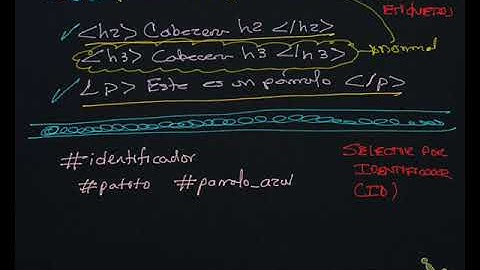 ETIQUETAS
<h2> Cabecera h2 </h2>
<h3> Cabecera h3 </h3>
normal
<p> Este es un párrafo </p>
#identificador
SELECTOR POR
IDENTIFICADOR
(ID)
#patoto #parrafo_azul